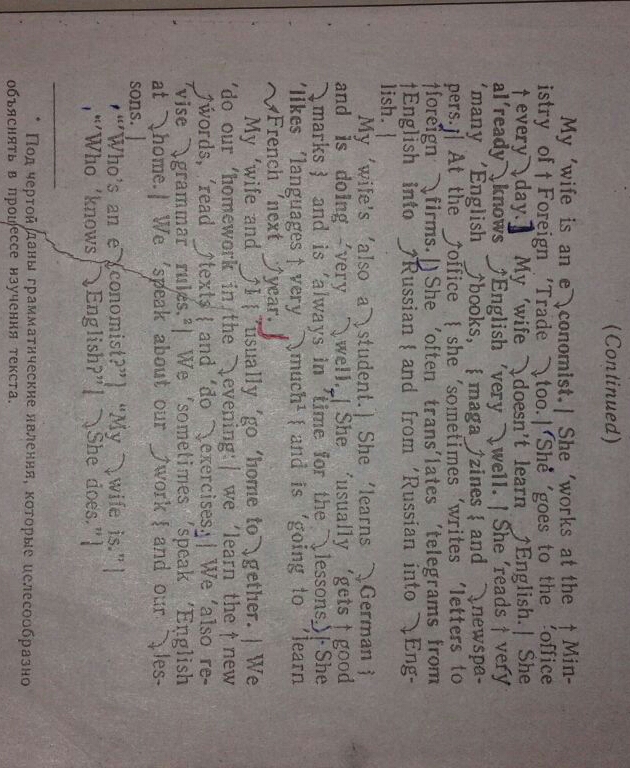 (Continued)
My 'wife is an e⤵conomist. | She 'works at the ↑ Min-
istry of ↑ Foreign 'Trade ⤵too. | 'She 'goes to the 'office
↑ every ⤵day. | My 'wife ⤵doesn't learn ⤴English. | She
al'ready ⤵knows ⤴English 'very ⤵well. | She 'reads ↑ very
'many 'English ⤴books, ⦚ maga⤴zines ⦚ and ⤵newspa-
pers. | At the ⤴office ⦚ she 'sometimes 'writes 'letters to
↑ foreign ⤵firms. | She 'often trans'lates 'telegrams from
↑ English into ⤴Russian ⦚ and from 'Russian into ⤵Eng-
lish. |
My 'wife's 'also a ⤵student. | She 'learns ⤵German ⦚
and is doing 'very ⤵well. | She 'usually 'gets ↑ good
⤵marks ⦚ and is 'always in 'time for the ⤵lessons. | She
'likes 'languages ↑ very ⤵much¹ ⦚ and is 'going to 'learn
⤴French 'next ⤵year. |
My 'wife and ⤴I ⦚ 'usually 'go 'home to⤵gether. | We
'do our 'homework in 'the ⤵evening: | we 'learn the ↑ new
⤴words, 'read ⤴texts ⦚ and 'do ⤵exercises. | We 'also re-
'vise ⤵grammar rules.² | We 'sometimes 'speak 'English
at ⤵home. | We 'speak about our ⤴work ⦚ and our ⤵les-
sons. |
"'Who's an e⤵conomist?" | "My ⤵wife is." |
"'Who 'knows ⤵English?" | ⤵She does." |
* Под чертой даны грамматические явления, которые целесообразно
объяснять в процессе изучения текста.